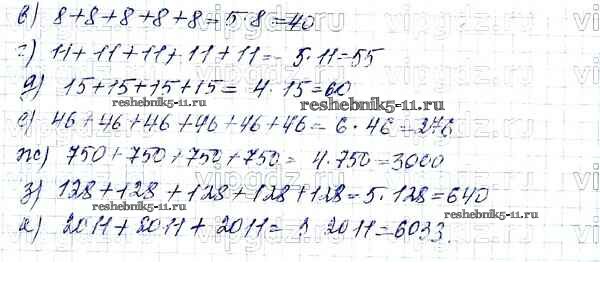 в) 8+8+8+8+8=5·8=40
г) 11+11+11+11+11= 5·11=55
д) 15+15+15+15= 4·15=60
reshebnik5-11.ru reshebnik5-11.ru
е) 46+46+46+46+46+46=6·46=276
ж) 750+750+750+750= 4·750=3000
reshebnik5-11.ru
з) 128+128+128+128+128=5·128=640
reshebnik5-11.ru
и) 2011+2011+2011= 3 2011=6033.
vipgdz.ru